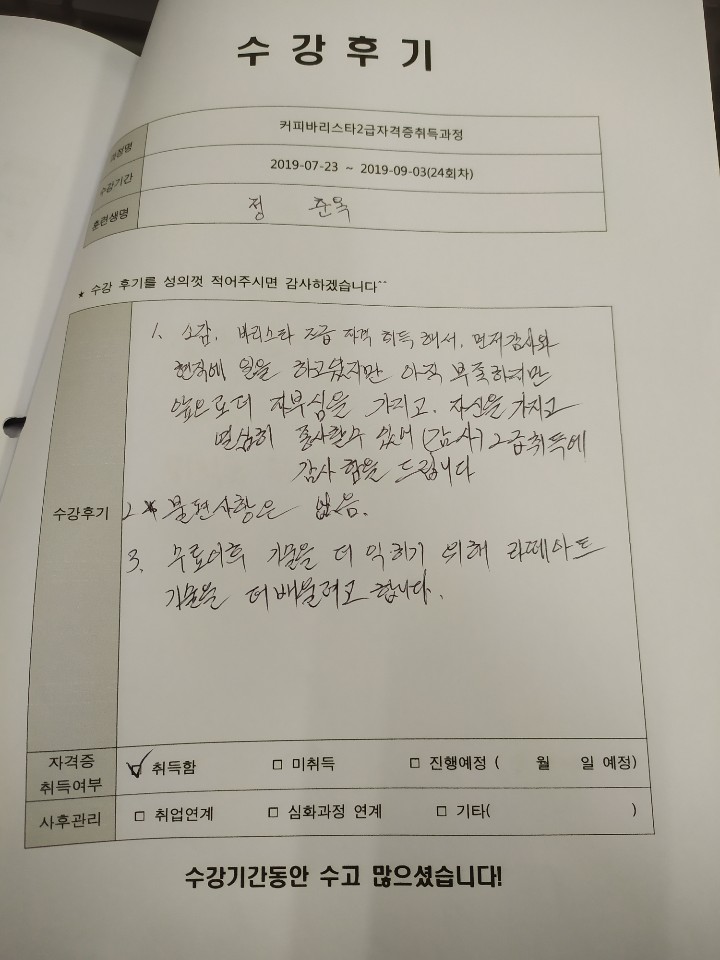 수강후기
과정명 커피바리스타2급자격증취득과정
수강기간 2019-07-23 ~ 2019-09-03(24회차)
훈련생명 정 춘옥
* 수강 후기를 성의껏 적어주시면 감사하겠습니다^^
수강후기
1. 소감. 바리스타 2급 자격 취득 해서. 먼저감사와
현직에 일을 하고왔지만 아직 부족하지만
앞으로더 자부심을 가지고. 자신을가지고
열심히 종사할수 있어 (감사) 2급취득에
감사 함을 드립니다
2. 불편사항은 없음.
3. 무료이후 기술을 더 익히기 위해 라떼아트
기술을 더배울려고 합니다.
자격증 취득여부 ☑ 취득함 □ 미취득 □ 진행예정 ( 월 일 예정)
사후관리 □ 취업연계 □ 심화과정 연계 □ 기타( )
수강기간동안 수고 많으셨습니다!